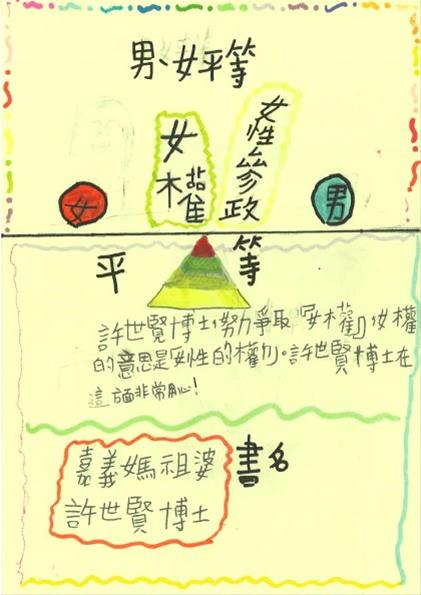 男女平等
女權
女性參政
女
男
平等
許世賢博士努力爭取「女權」女權
的意思是女性的權力。許世賢博士在
這方面非常用心!
書名
嘉義媽祖婆
許世賢博士